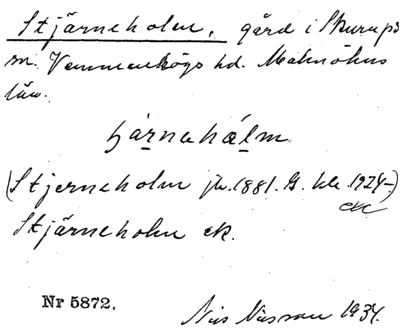 Stjärneholm, gård i Skurups
sn. Vemmenhögs hd. Malmöhus
län.
(Stjerneholm jb. 1881. G. kb. 1924-)
ek
Stjärneholm ek.
Nr 5872.
Nils Nilsson 1934.